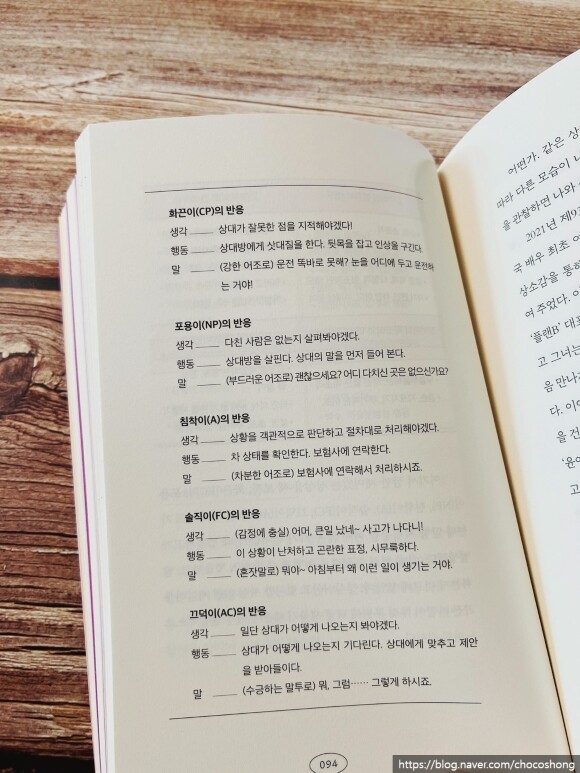 화끈이(CP)의 반응
생각 상대가 잘못한 점을 지적해야겠다!
행동 상대방에게 삿대질을 한다. 뒷목을 잡고 인상을 구긴다.
말 (강한 어조로) 운전 똑바로 못해? 눈을 어디에 두고 운전하
는 거야!
포용이(NP)의 반응
생각 다친 사람은 없는지 살펴봐야겠다.
행동 상대방을 살핀다. 상대의 말을 먼저 들어 본다.
말 (부드러운 어조로) 괜찮으세요? 어디 다치신 곳은 없으신가요?
침착이(A)의 반응
생각 상황을 객관적으로 판단하고 절차대로 처리해야겠다.
행동 차 상태를 확인한다. 보험사에 연락한다.
말 (차분한 어조로) 보험사에 연락해서 처리하시죠.
솔직이(FC)의 반응
생각 (감정에 충실) 어머, 큰일 났네~ 사고가 나다니!
행동 이 상황이 난처하고 곤란한 표정, 시무룩하다.
말 (혼잣말로) 뭐야~ 아침부터 왜 이런 일이 생기는 거야.
끄덕이(AC)의 반응
생각 일단 상대가 어떻게 나오는지 봐야겠다.
행동 상대가 어떻게 나오는지 기다린다. 상대에게 맞추고 제안
을 받아들이다.
말 (수긍하는 말투로) 뭐, 그럼…… 그렇게 하시죠.
094
어떤가. 같은 상
따라 다른 모습이 나
을 관찰하면 나와
2021년 제93
국 배우 최초 여
상소감을 통해
여 주었다. 이
'플랜B' 대표
고 그녀는
음 만나
다. 이
을 건
'윤여
고
https://blog.naver.com/chocoshong